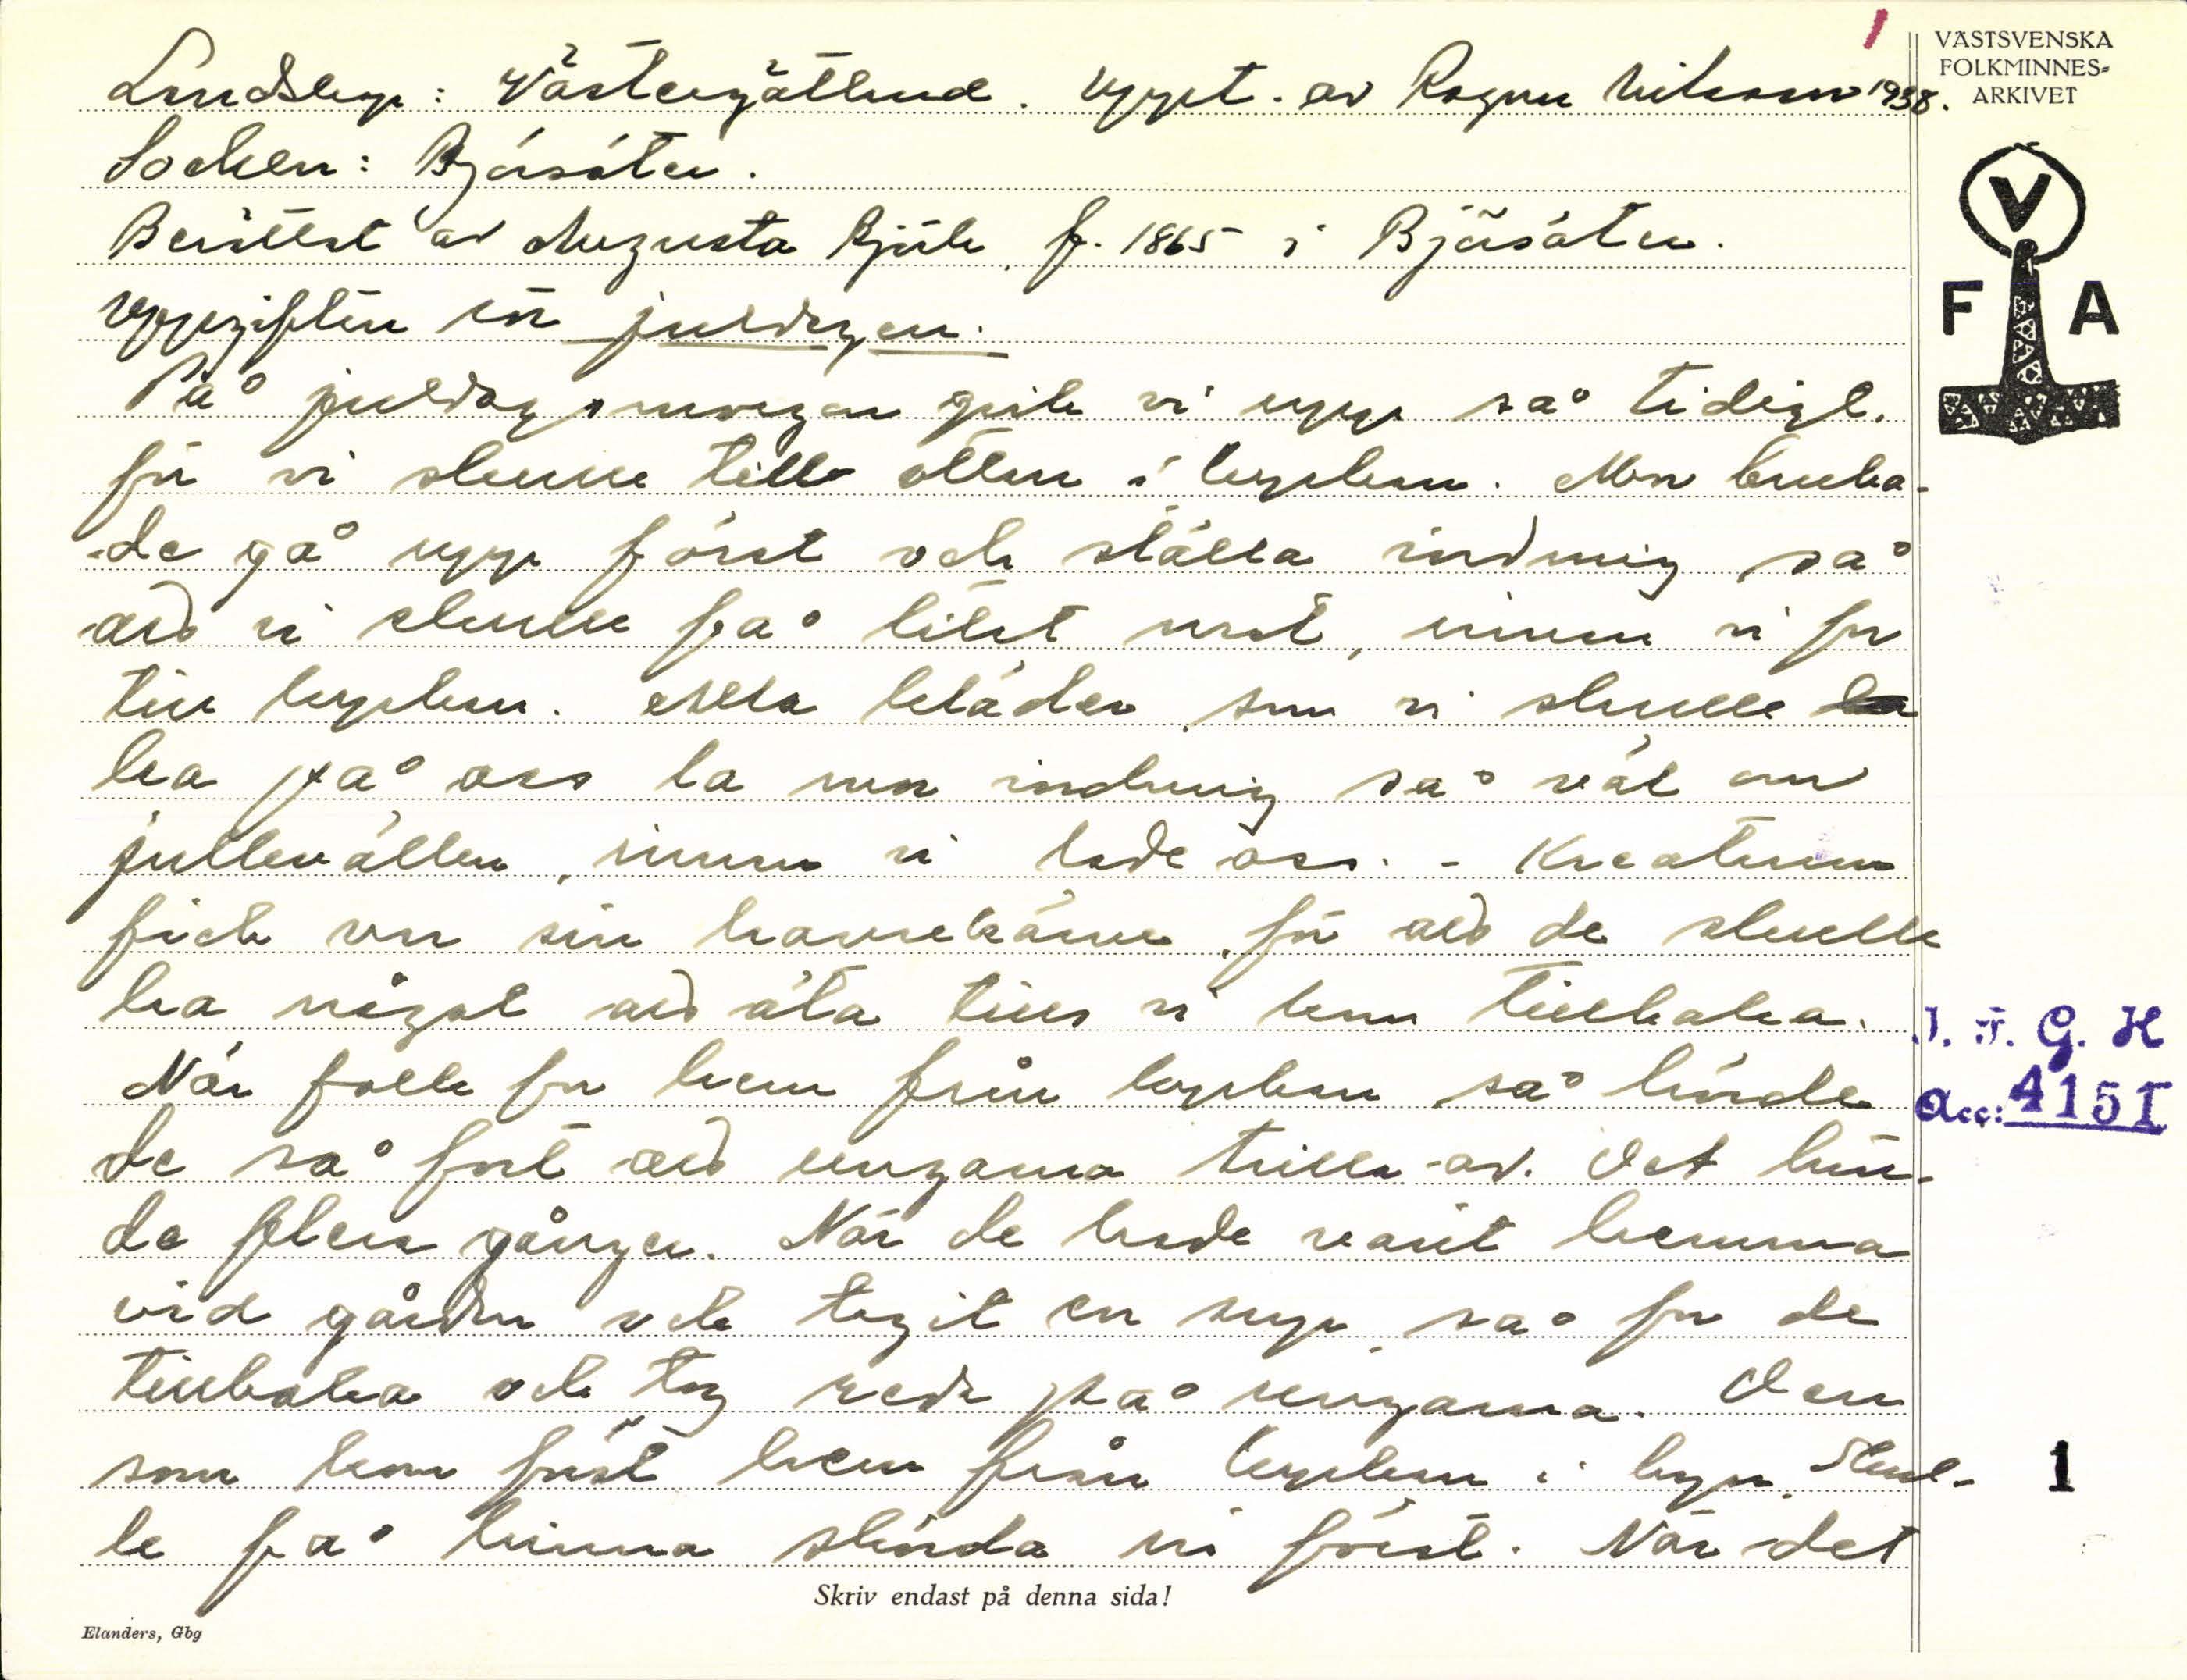 1
VÄSTSVENSKA
FOLKMINNES-
ARKIVET
V
F A
Landskap: Västergötland. Uppt. av Ragnar Nilsson 1938.
Socken: Björsäter.
Berättat av Augusta f. 1865 i Björsäter.
Uppgiften rör juldagen.
På juldagsmorgon gick vi upp så tidigt.
för vi skulle till ottan i kyrkan. Mor bruka-
-de gå upp först och ställa iordning så
att vi skulle få litet mat, innan vi for
till kyrkan. Alla kläder som vi skulle
ha på oss la mor iordning så väl om
julkvällen, innan vi lade oss. - Kreaturen
fick var sin havrekärve för att de skulle
ha något att äta tills vi kom tillbaka.
När folk for hem från kyrkan så körde
de så fort att ungarna trilla av. Det hän-
de flera gånger. När de hade varit hemma
vid gården och tagit en sup så for de
tillbaka och tog reda på ungarna. Den
som kom först hem från kyrkan i byn skul-
le få hinna skörda in först. När det
I. F. G. H
Acc: 4151
1
Skriv endast på denna sida!
Elanders, Gbg